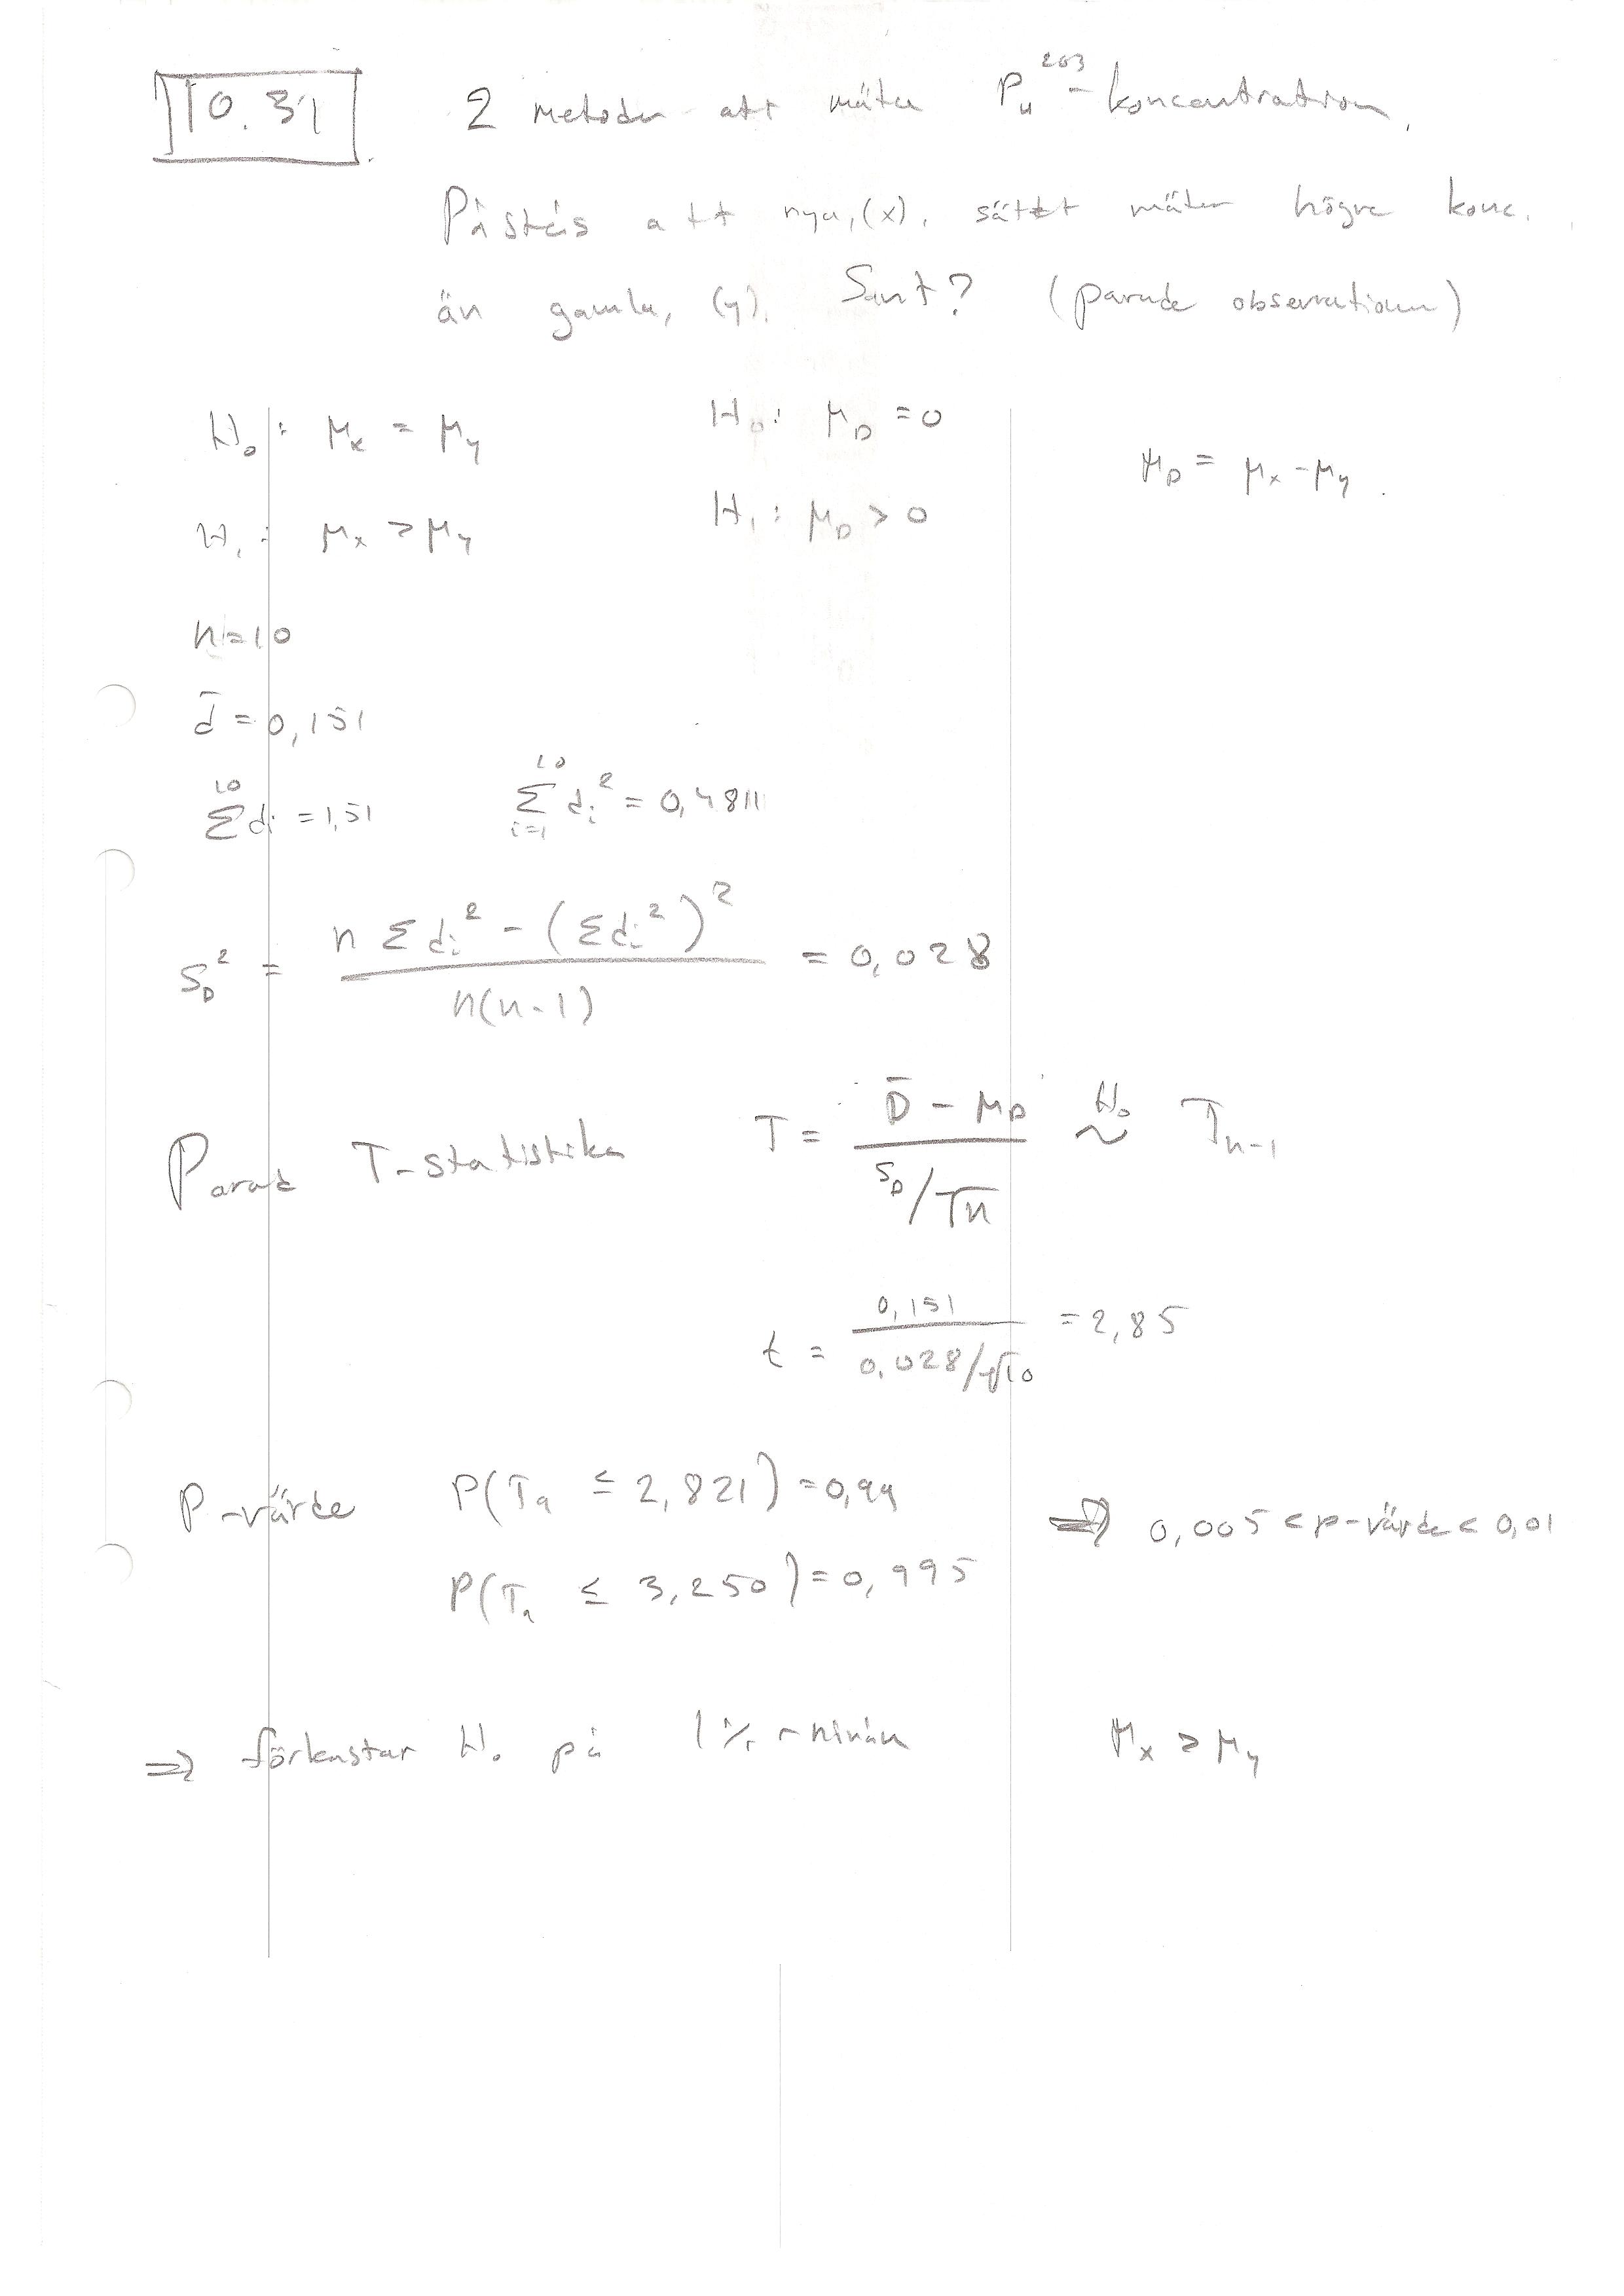 10.31 2 metoder att mäta Pu²⁰³-koncentration.
Påstås att nya, (x), sättet mäter högre konc.
än gamla, (y). Sant? (parade observationer)
H₀: μₓ = μ_y H₀: μ_D = 0 μ_D = μₓ - μ_y.
H₁: μₓ > μ_y H₁: μ_D > 0
n=10
d̄ = 0,151
Σ¹⁰ dᵢ = 1,51 Σᵢ₌₁¹⁰ dᵢ² = 0,4811
S_D² = (n Σdᵢ² - (Σdᵢ²)²) / (n(n-1)) = 0,028
Parad T-statistika T = (D̄ - μ_D) / (S_D/√n) ~^H₀ T_n-1
t = 0,151 / (0,028/√10) = 2,85
P-värde P(T₉ ≤ 2,821) = 0,99 ⇒ 0,005 < p-värde < 0,01
P(T₉ ≤ 3,250) = 0,995
⇒ förkastar H₀ på 1%-nivån μₓ > μ_y